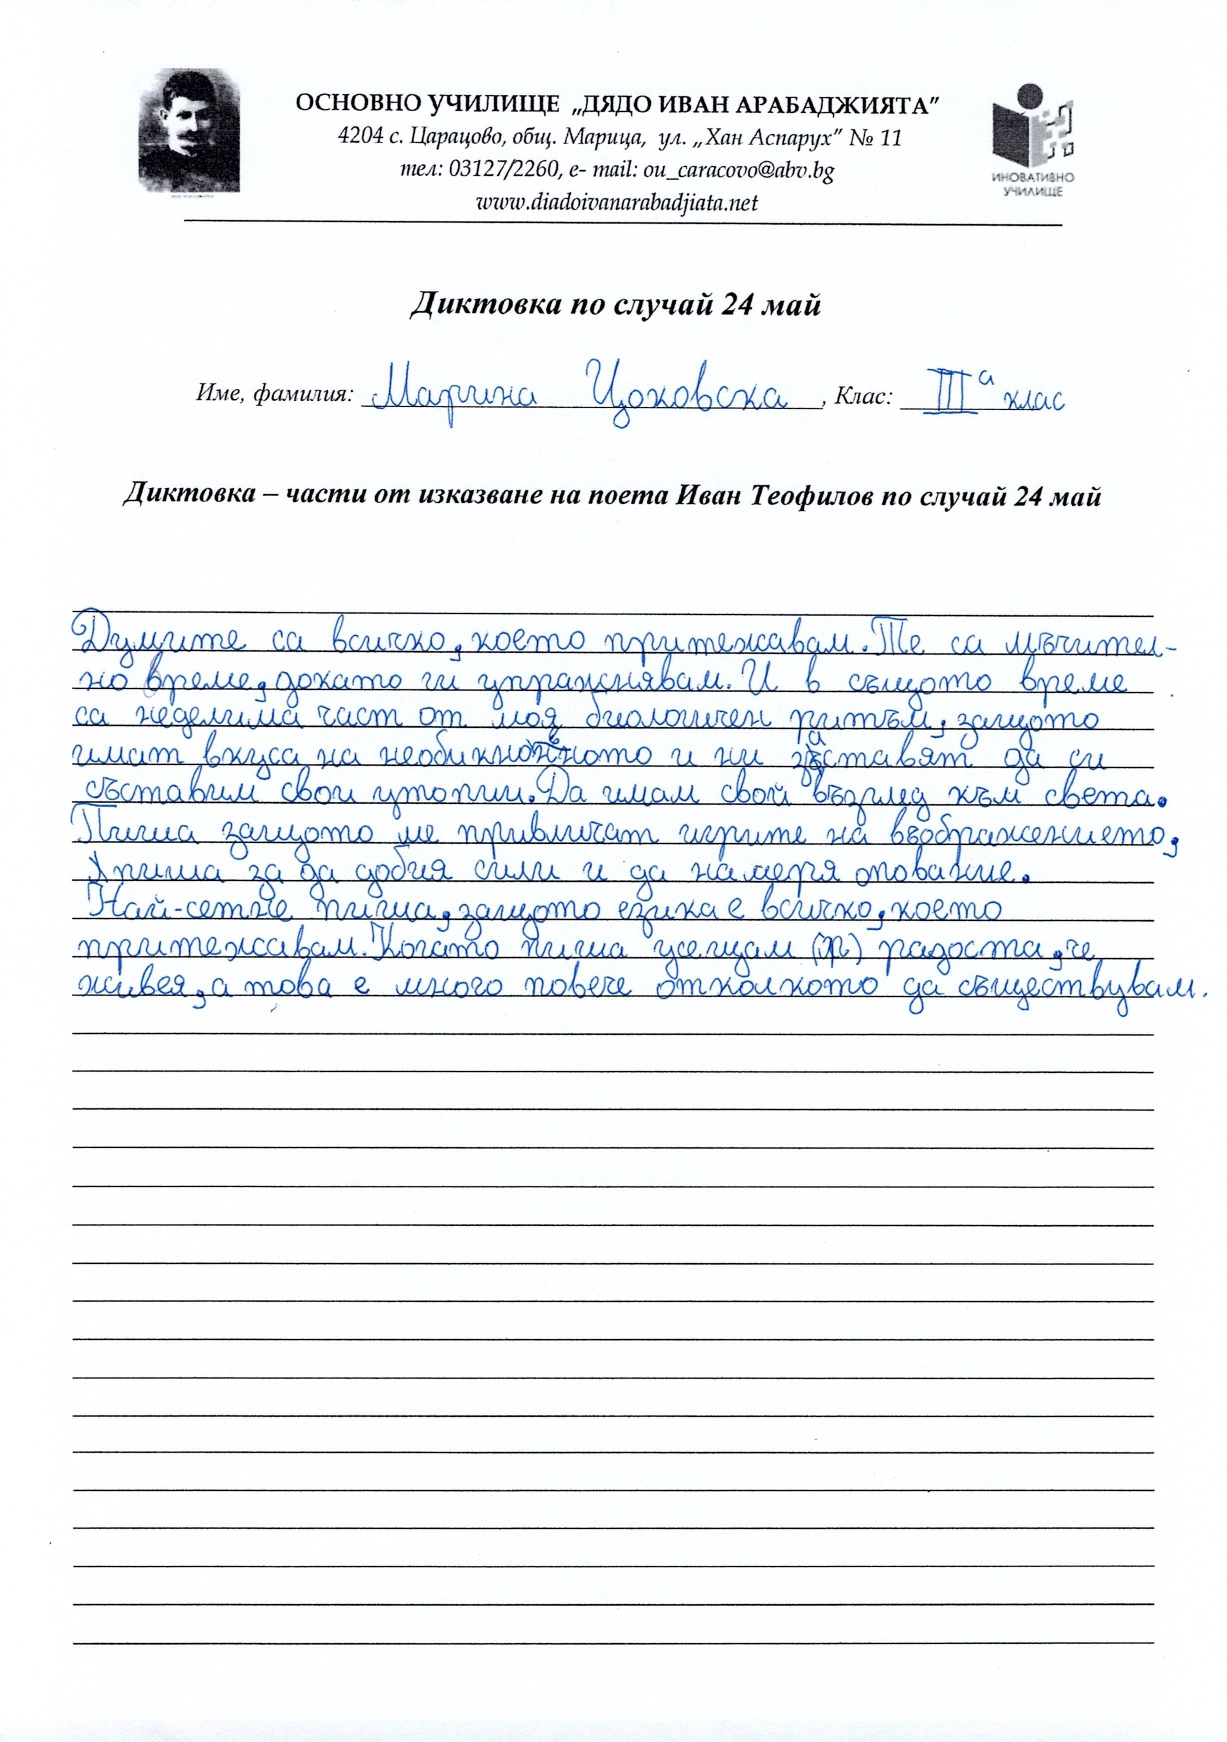 ОСНОВНО УЧИЛИЩЕ „ДЯДО ИВАН АРАБАДЖИЯТА”
4204 с. Царацово, общ. Марица, ул. „Хан Аспарух” № 11
тел: 03127/2260, e- mail: ou_caracovo@abv.bg
www.diadoivanarabadjiata.net
ИНОВАТИВНО
УЧИЛИЩЕ
Диктовка по случай 24 май
Име, фамилия: Марина Цоковска, Клас: III а клас
Диктовка – части от изказване на поета Иван Теофилов по случай 24 май
Думите са всичко, което притежавам. Те са мъчител-
но време, докато ги упражнявам. И в същото време
са неделима част от моя биологичен ритъм, защото
имат вкуса на необикновеното и ни заставят да си
съставим свои утопии. Да имам свой възглед към света.
Пиша защото ме привличат игрите на въображението,
пиша за да добия сили и да намеря опование.
Най-сетне пиша, защото езика е всичко, което
притежавам. Когато пиша усещам радоста, че
живея, а това е много повече отколкото да съществувам.